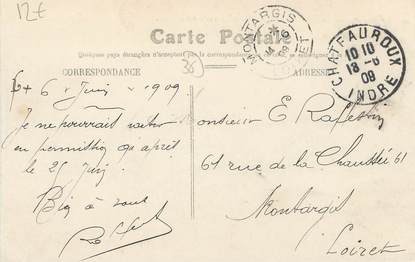 12€
Carte Postale
Quelques pays étrangers n'acceptent pas la correspondance
30
CORRESPONDANCE
ADRESSE
MONTARGIS
LOIRET
CHATEAUROUX
10 10
18 -6
09
INDRE
6 Juin 1909
Je ne pourrait
en permission qu après
le 25 Juin.
Bien à vous
Monsieur E Raffestin
61 rue de la Chaussée 61
Montargis
Loiret